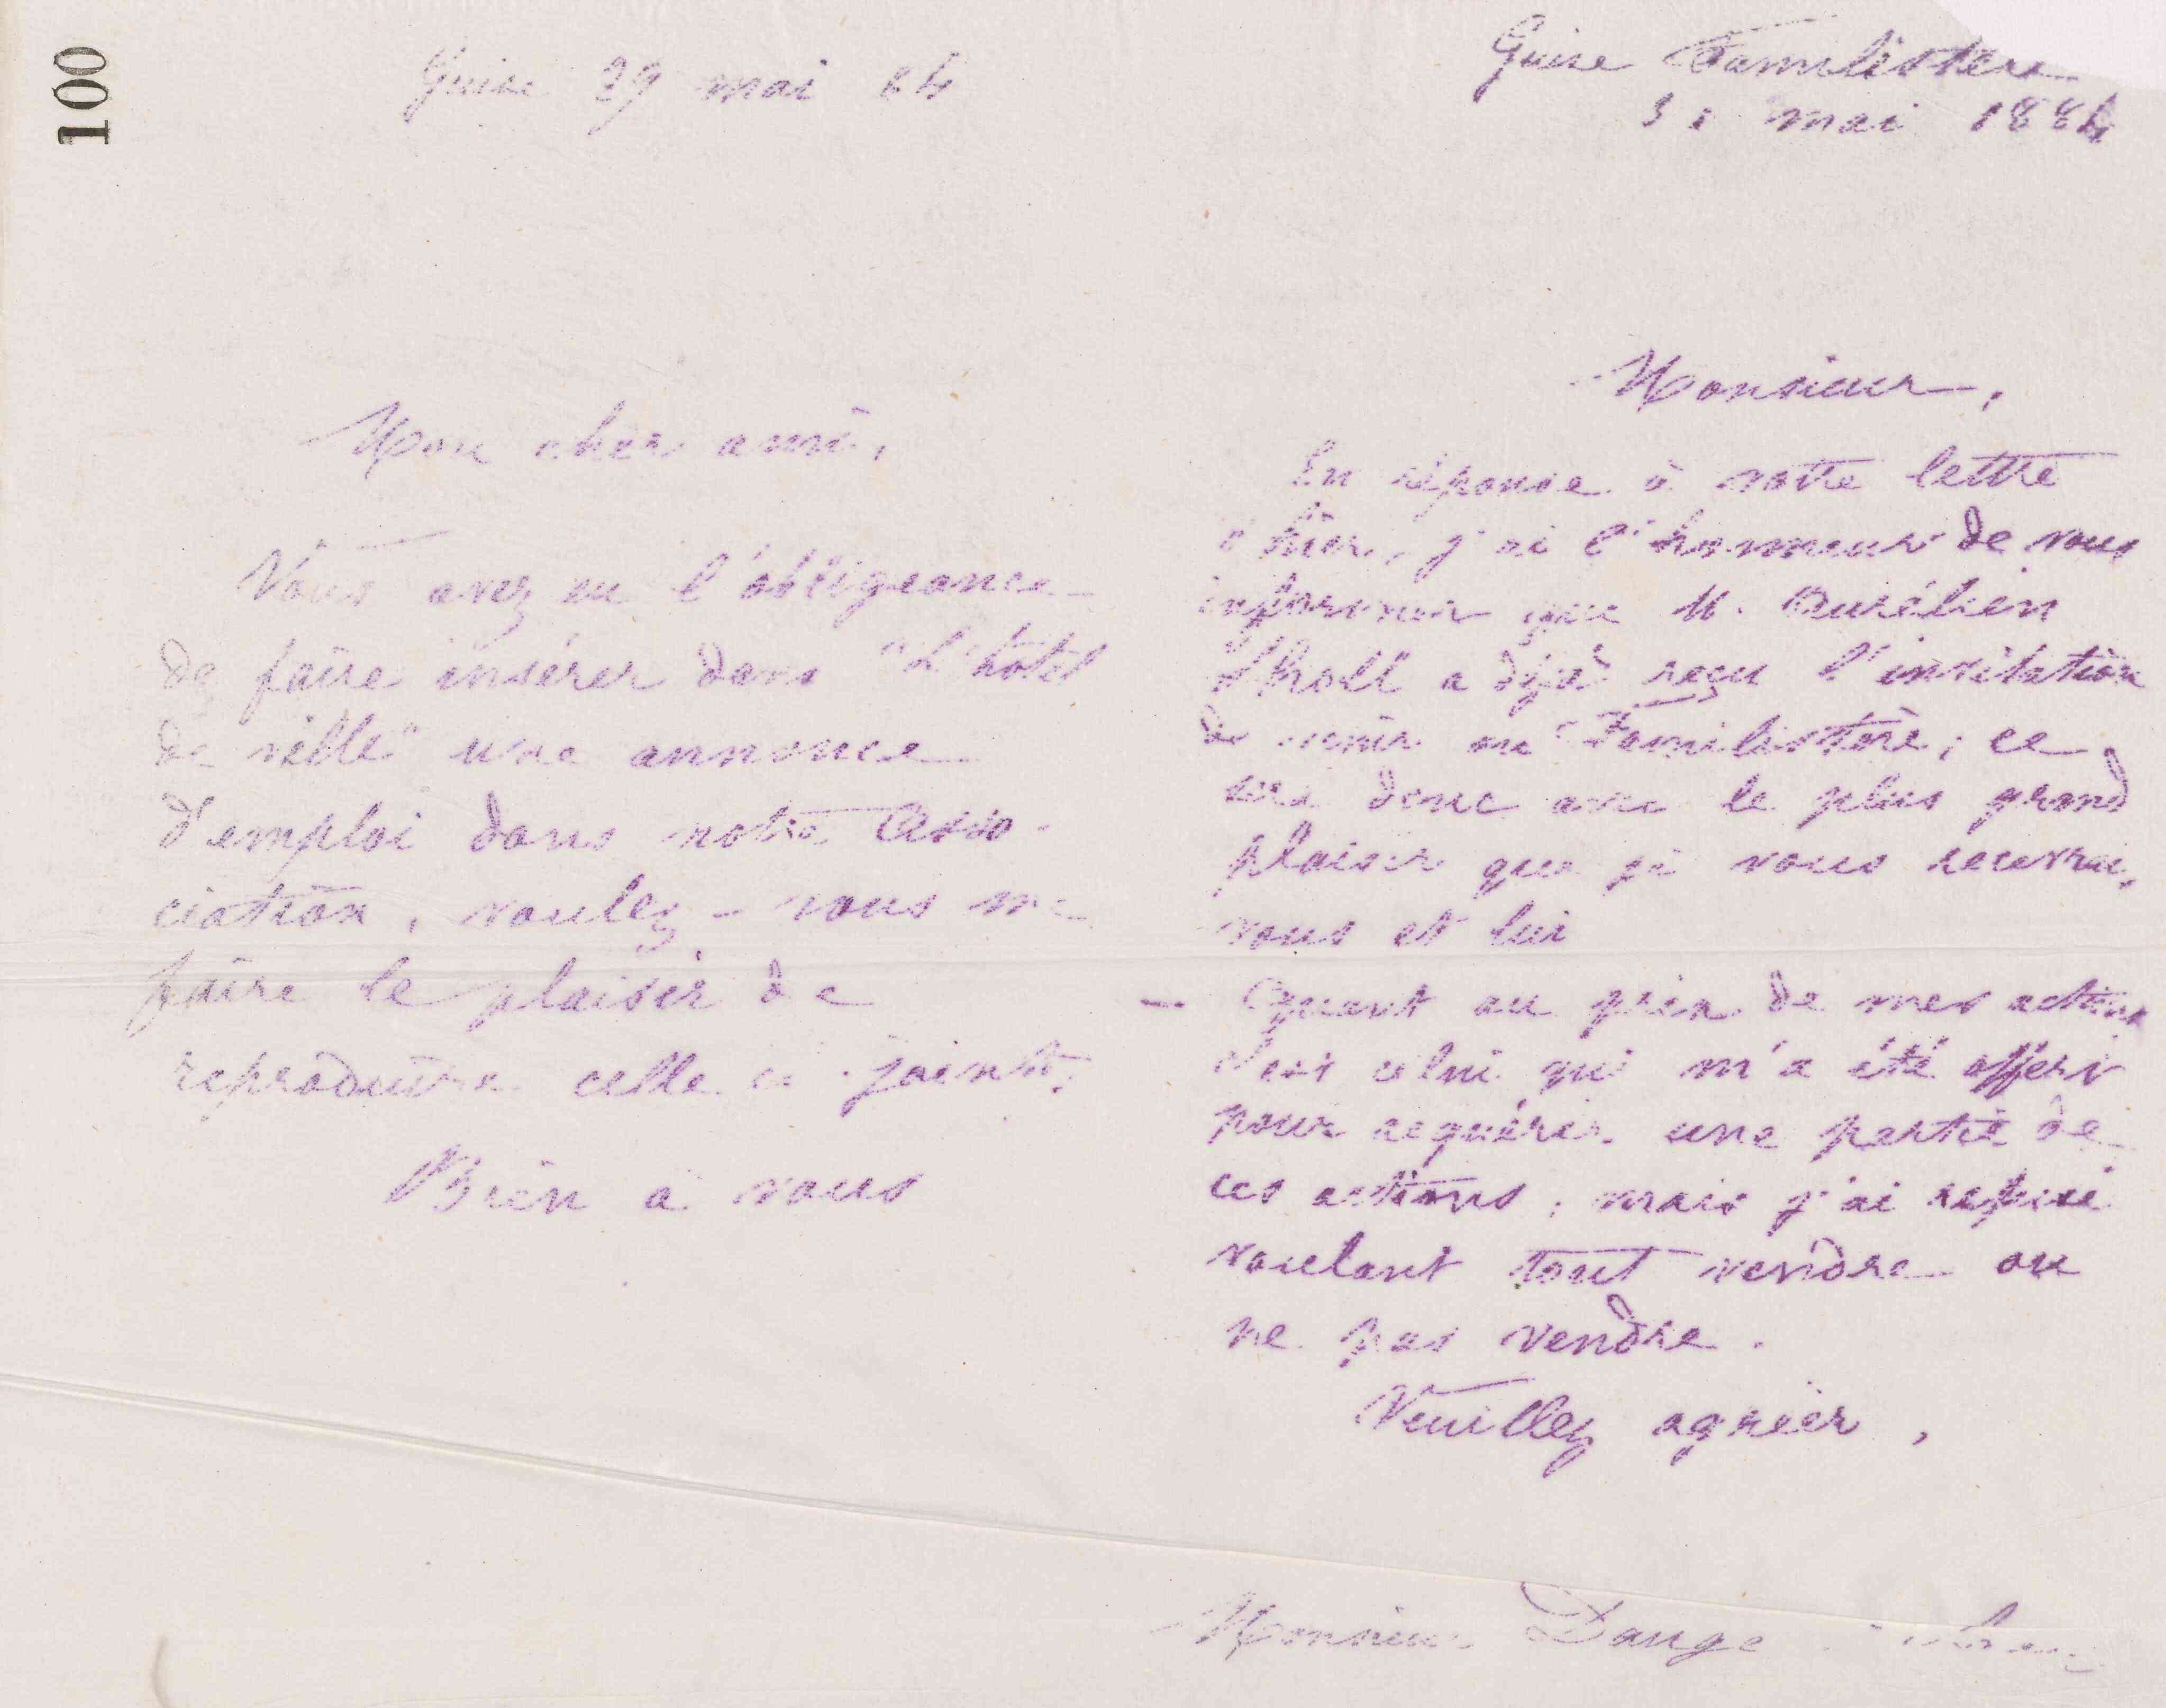 100
Guise 29 mai 84
Mon cher ami,
Vous avez eu l'obligeance
de faire insérer dans "L'hôtel
de ville" une annonce
d'emploi dans notre Asso-
ciation, voulez-vous me
faire le plaisir de
reproduire celle ci-jointe.
Bien à vous
Guise Familistère
31 mai 1884
Monsieur,
En réponse à votre lettre
d'hier, j'ai l'honneur de vous
informer que M. Aurélien
Scholl a déjà reçu l'invitation
de venir au Familistère; ce
sera donc avec le plus grand
plaisir que je vous recevrai,
vous et lui
- Quant au prix de mes actions
c'est celui qui m'a été offert
pour acquérir une partie de
ces actions; mais j'ai refusé
voulant tout vendre ou
ne pas vendre.
Veuillez agréer,
Monsieur Dange